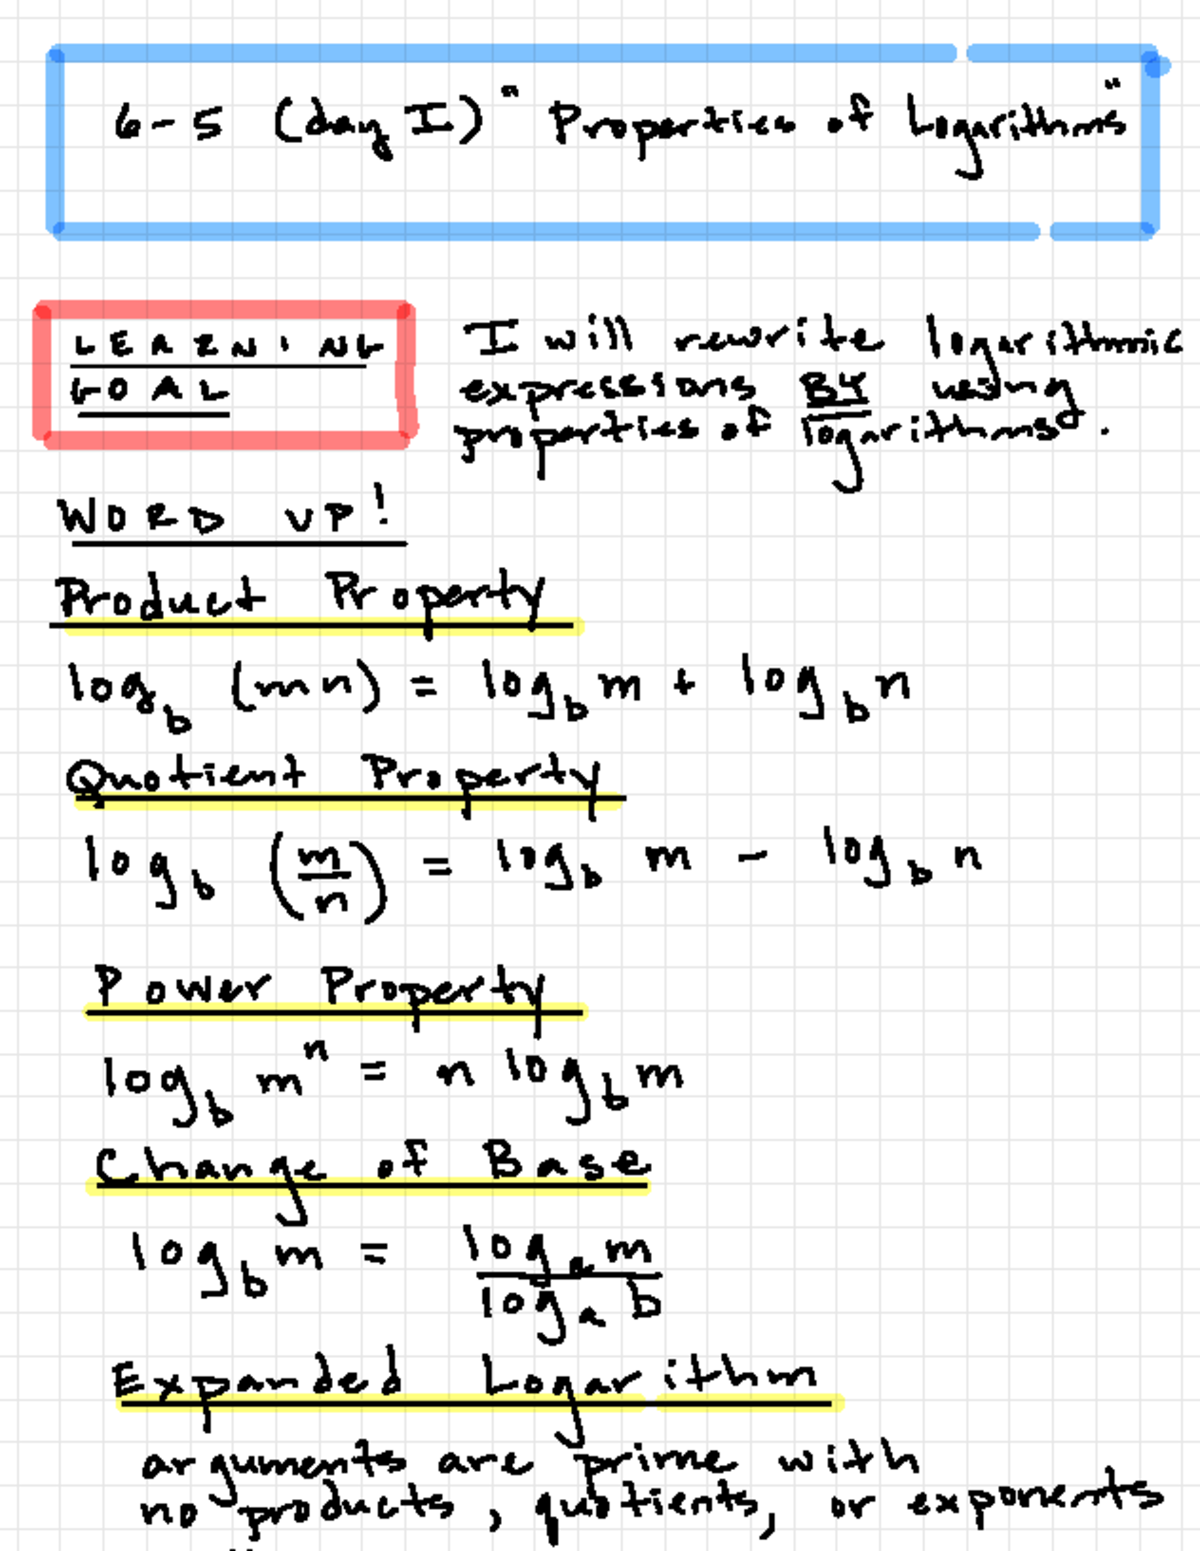 6-5 (day I) "Properties of Logarithms"
LEARNING
GOAL
I will rewrite logarithmic
expressions BY using
properties of logarithms.
WORD UP!
Product Property
log_b (mn) = log_b m + log_b n
Quotient Property
log_b (m/n) = log_b m - log_b n
Power Property
log_b m^n = n log_b m
Change of Base
log_b m = log_a m / log_a b
Expanded Logarithm
arguments are prime with
no products, quotients, or exponents